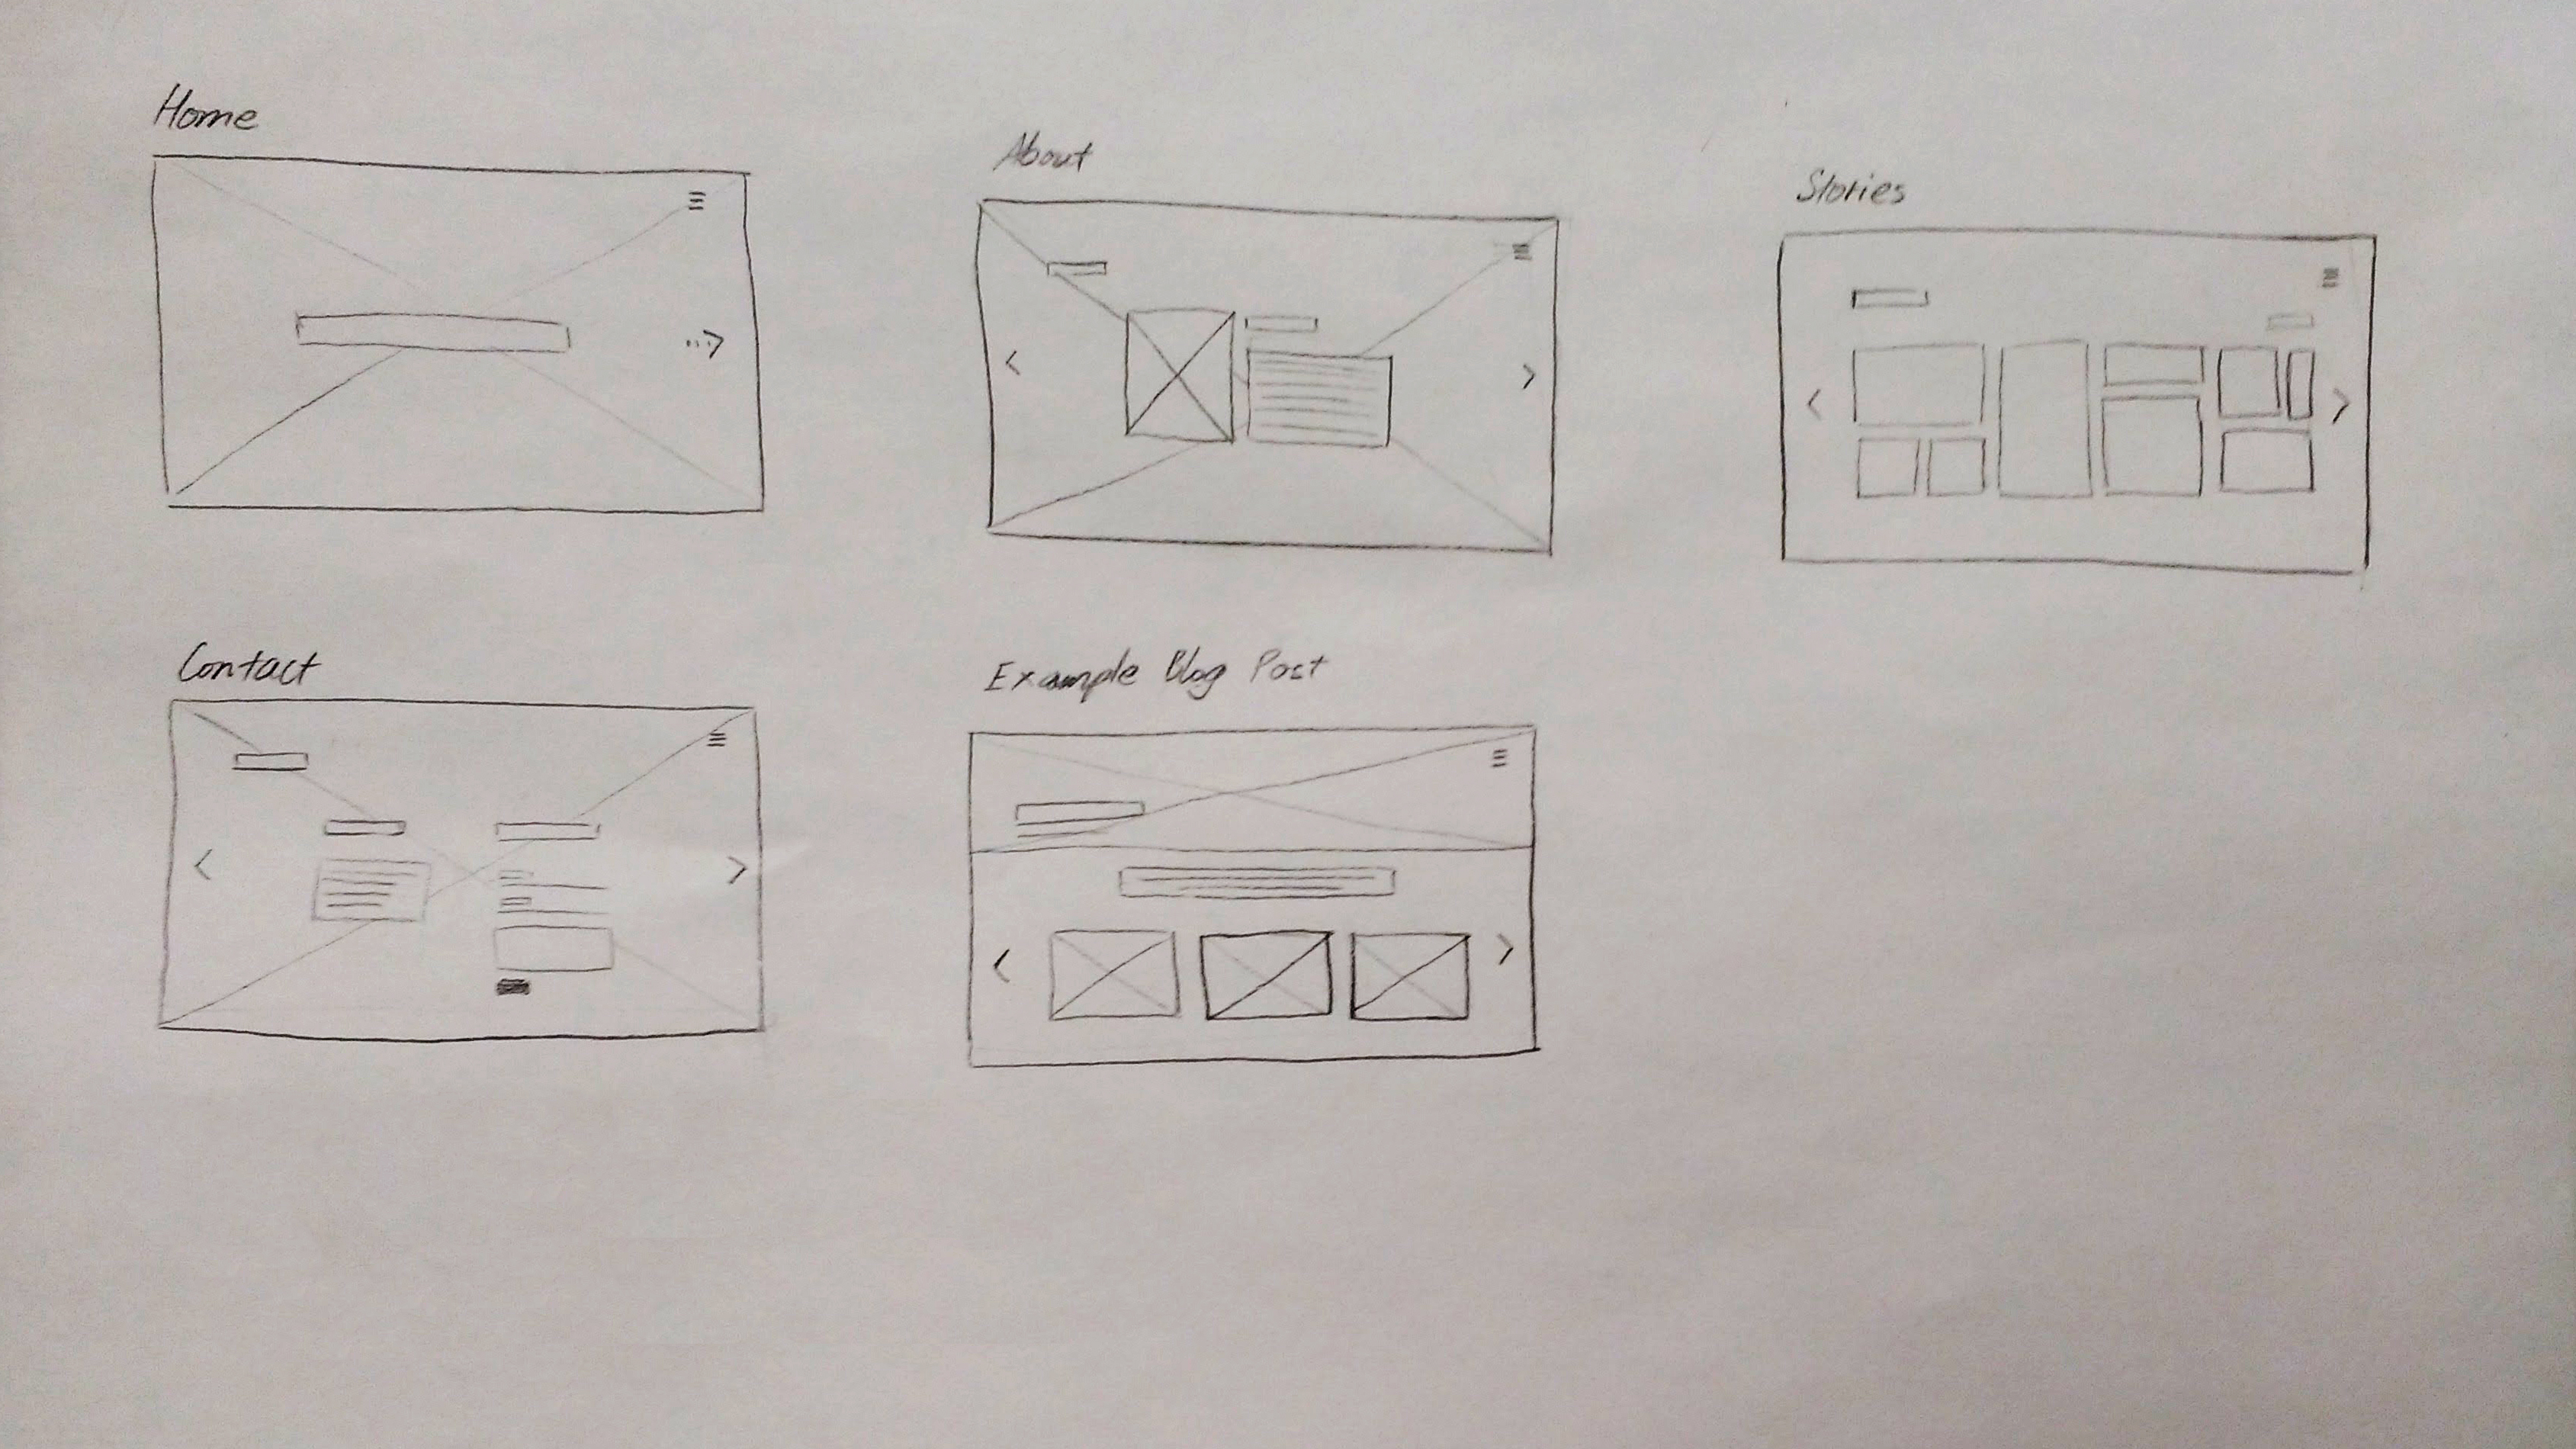 Home
About
Stories
Contact
Example Blog Post